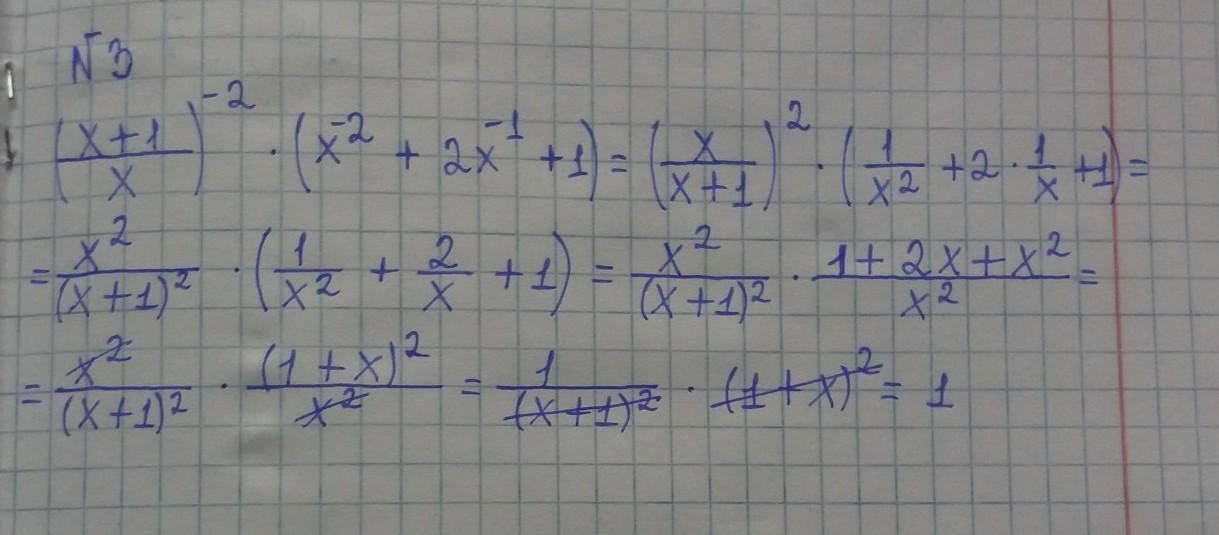 N3
((x+1)/x)⁻² · (x⁻² + 2x⁻¹ + 1) = (x/(x+1))² · (1/x² + 2 · 1/x + 1) =
= x²/(x+1)² · (1/x² + 2/x + 1) = x²/(x+1)² · (1 + 2x + x²)/x² =
= x²/(x+1)² · (1 + x)²/x² = 1/(x+1)² · (1 + x)² = 1